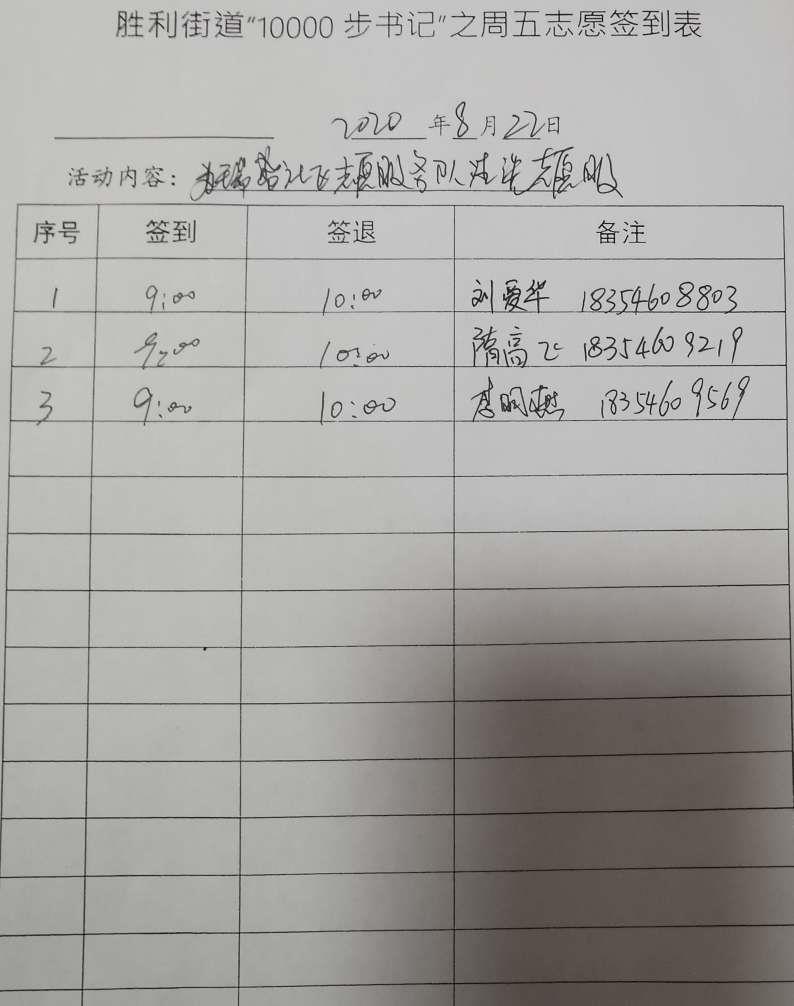 胜利街道“10000 步书记”之周五志愿签到表
2020 年 8 月 22 日
活动内容： 社区志愿服务队清洗志愿服
序号 签到 签退 备注
1 9:00 10:00 刘爱华 18354608803
2 9:00 10:00 隋高飞 18354609219
3 9:00 10:00 李明 18354609569